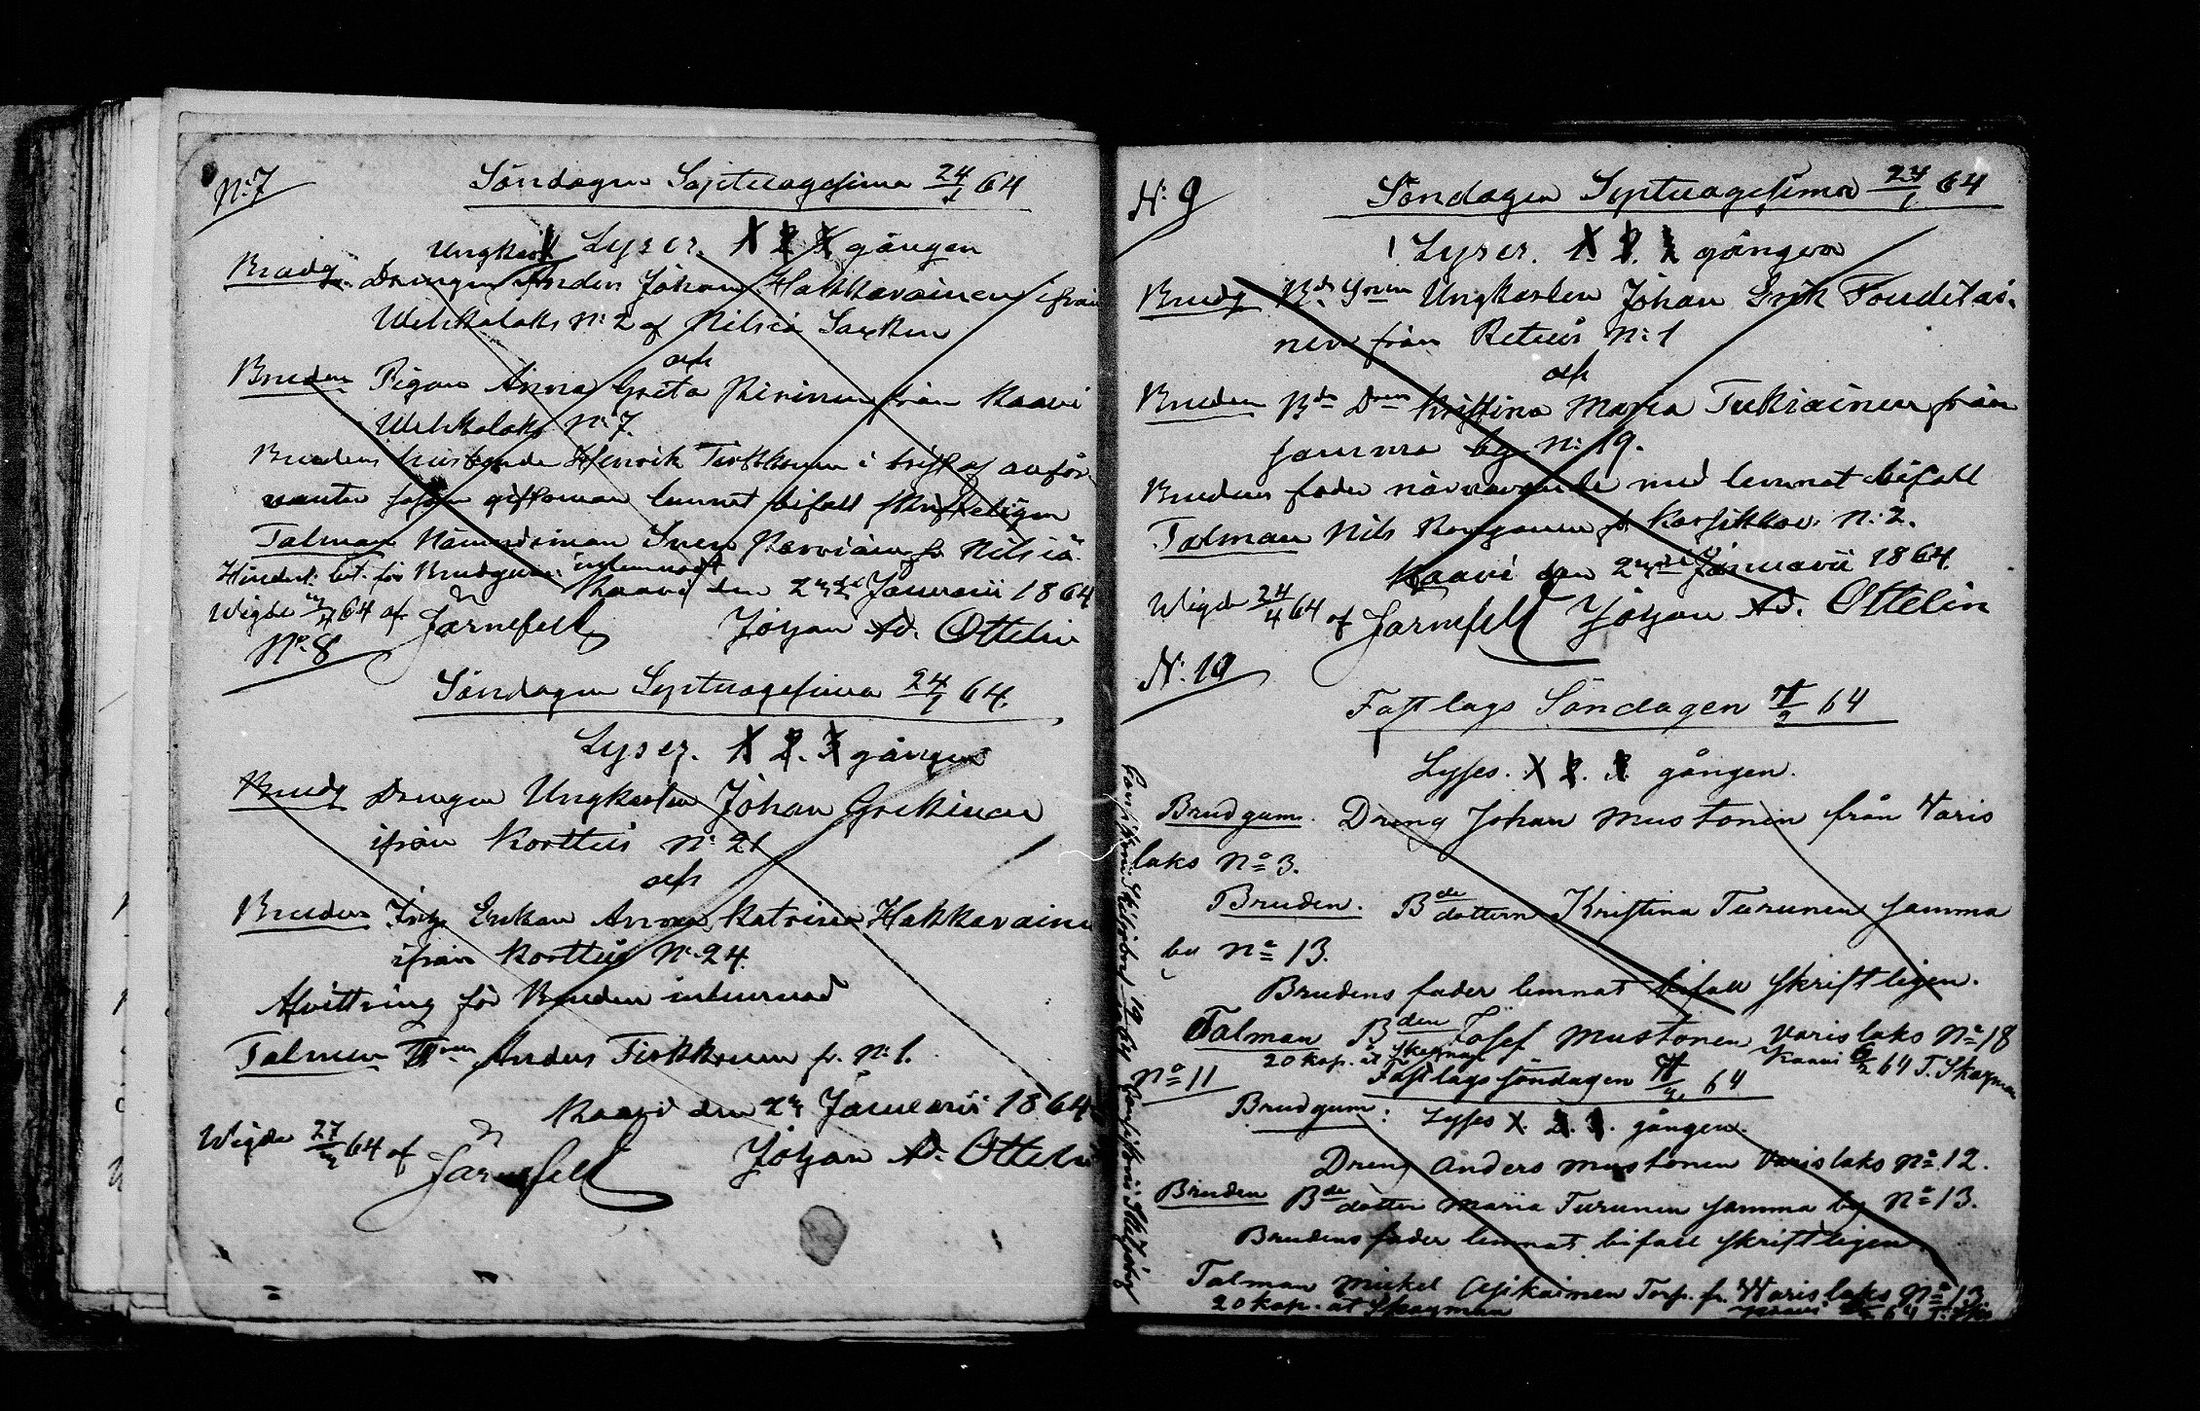 N:7
Söndagen Septuagesima 24/1 64
Lyser. 1 2 3 gången
Ungkarl
Brudg. Drengen Anders Johan Hakkarainen ifrån
Wehkalaks N:2 af Nilsiä Socken
och
Bruden Pigan Anna Greta Pirinen från Kaavi
Wehkalaks N:7.
Brudens husbonde Henrik Tirkkonen i brist af anför
vanter såsom giftoman lemnat bifall skrifteligen
Talman Nämndeman Sven fr Nilsiä.
Hinderl: bet. för Brudgum: inlemnadt
Kaavi den 24de Januarii 1864
Wigde 64 af Järnefelt Johan Ad. Ottelin
N:8
Söndagen Septuagesima 24/1 64.
Lyser. 1 2. 3 gången
Brudg Drengen Ungkarlen Johan
ifrån Korttus N:21
och
Bruden Enkan Anna Katrina Hakkarainen
ifrån Korttus N:24.
Afvittring för Bruden inlemnad
Talman Anders Tirkkonen fr. N:1.
Kaavi den 24 Januarii 1864
Wigde 27 64 af Järnefelt Johan Ad. Ottelin
N:9
Söndagen Septuagesima 24/1 64
Lyser. 1. 2. 3 gången
Brudg Bde Ungkarlen Johan Erik
nen från Retuis N:1
och
Bruden Bde Kristina Maria Tukiainen från
samma by N:19.
Brudens fader närvarande med lemnat bifall
Talman Nils fr N:2.
Kaavi den 24de Januarii 1864.
Wigde 24/4 64 af Järnefelt Johan Ad. Ottelin
N:10
Fastlags Söndagen 7/2 64
Lyses. 1 2. 3. gången.
Brudgum. Dreng Johan Mustonen från Waris
laks No 3.
Bruden. Bde dottern Kristina Turunen samma
by No 13.
Brudens fader lemnat bifall skriftligen.
Talman Bden Josef Mustonen Varislaks No 18
20 kop. åt Skogman Kaavi 6/2 64 T. Skogman
No 11
Fastlagssöndagen 7/2 64
Brudgum: Lyses 1. 2. 3. gången.
Dreng Anders Mustonen Varislaks No 12.
Bruden Bde dotter Maria Turunen samma by No 13.
Brudens fader lemnat bifall skriftligen.
Talman Mickel Asikainen Torp. fr. Warislaks No 13
20 kop. åt Skogman